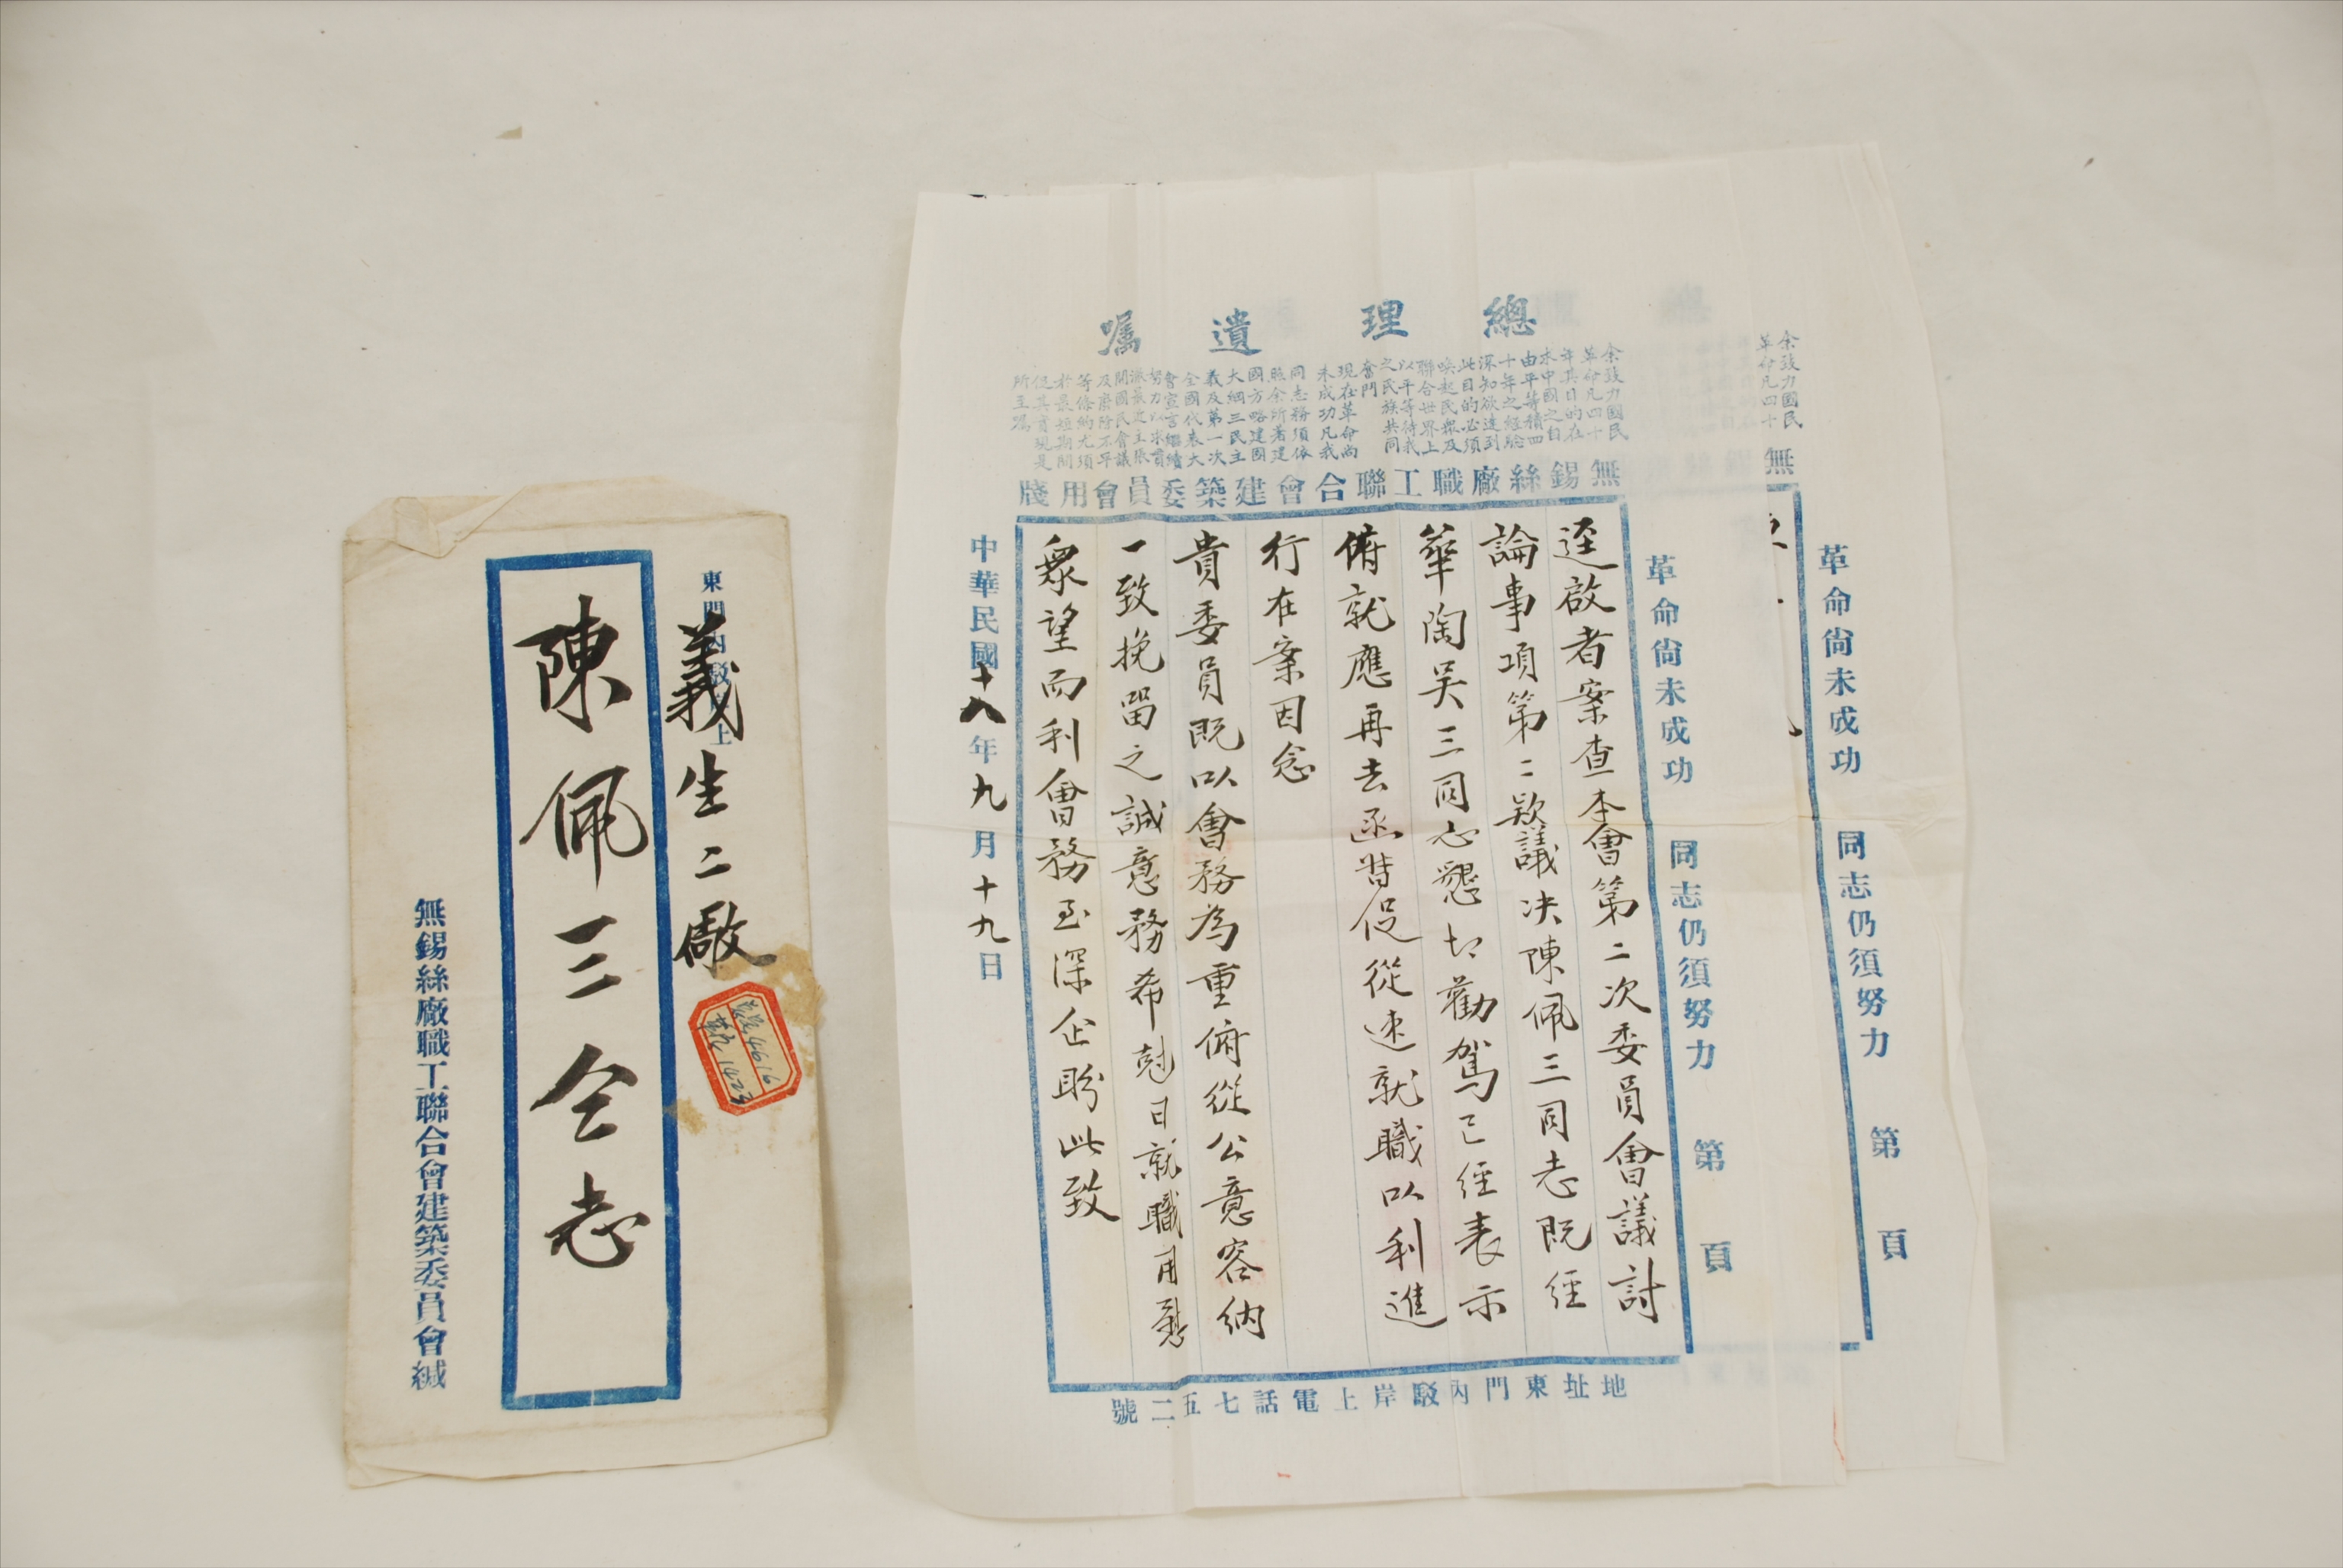 東門內駁岸上
義生二廠
陳佩三仝志
無錫絲廠職工聯合會建築委員會緘
4616
1423
總理遺囑
余致力國民
革命凡四十
年其目的在
求中國之自
由平等積四
十年之經驗
深知欲達到
此目的必須
喚起民眾及
聯合世界上
以平等待我
之民族共同
奮鬥
現在革命尚
未成功凡我
同志務須依
照余所著建
國方略建國
大綱三民主
義及第一次
全國代表大
會宣言繼續
努力以求貫
澈最近主張
開國民會議
及廢除不平
等條約尤須
於最短期間
促其實現是
所至囑
無錫絲廠職工聯合會建築委員會用牋
革命尙未成功 同志仍須努力 第 頁
逕啟者案查本會第二次委員會議討
論事項第二欵議决陳佩三同志既經
華陶吴三同志懇切勸駕已經表示
俯就應再去函督促從速就職以利進
行在案因念
貴委員既以會務為重俯從公意容納
一致挽留之誠意務希尅日就職用慰
衆望而利會務至深企盼此致
中華民國十八年九月十九日
地址東門內駁岸上電話七五二號
余致力國民
革命凡四十
無
革命尙未成功 同志仍須努力 第 頁